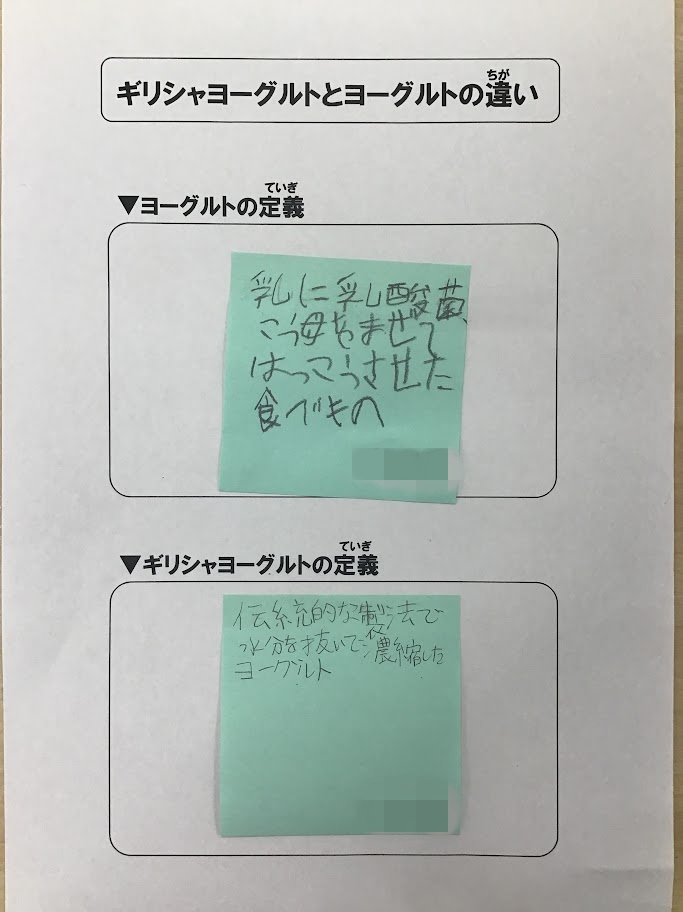 ギリシャヨーグルトとヨーグルトの違い
ちが
▼ヨーグルトの定義
ていぎ
乳に乳酸菌、
こう母をまぜて
はっこうさせた
食べもの
▼ギリシャヨーグルトの定義
ていぎ
伝統的な製法で
水分を抜いて濃縮した
ヨーグルト